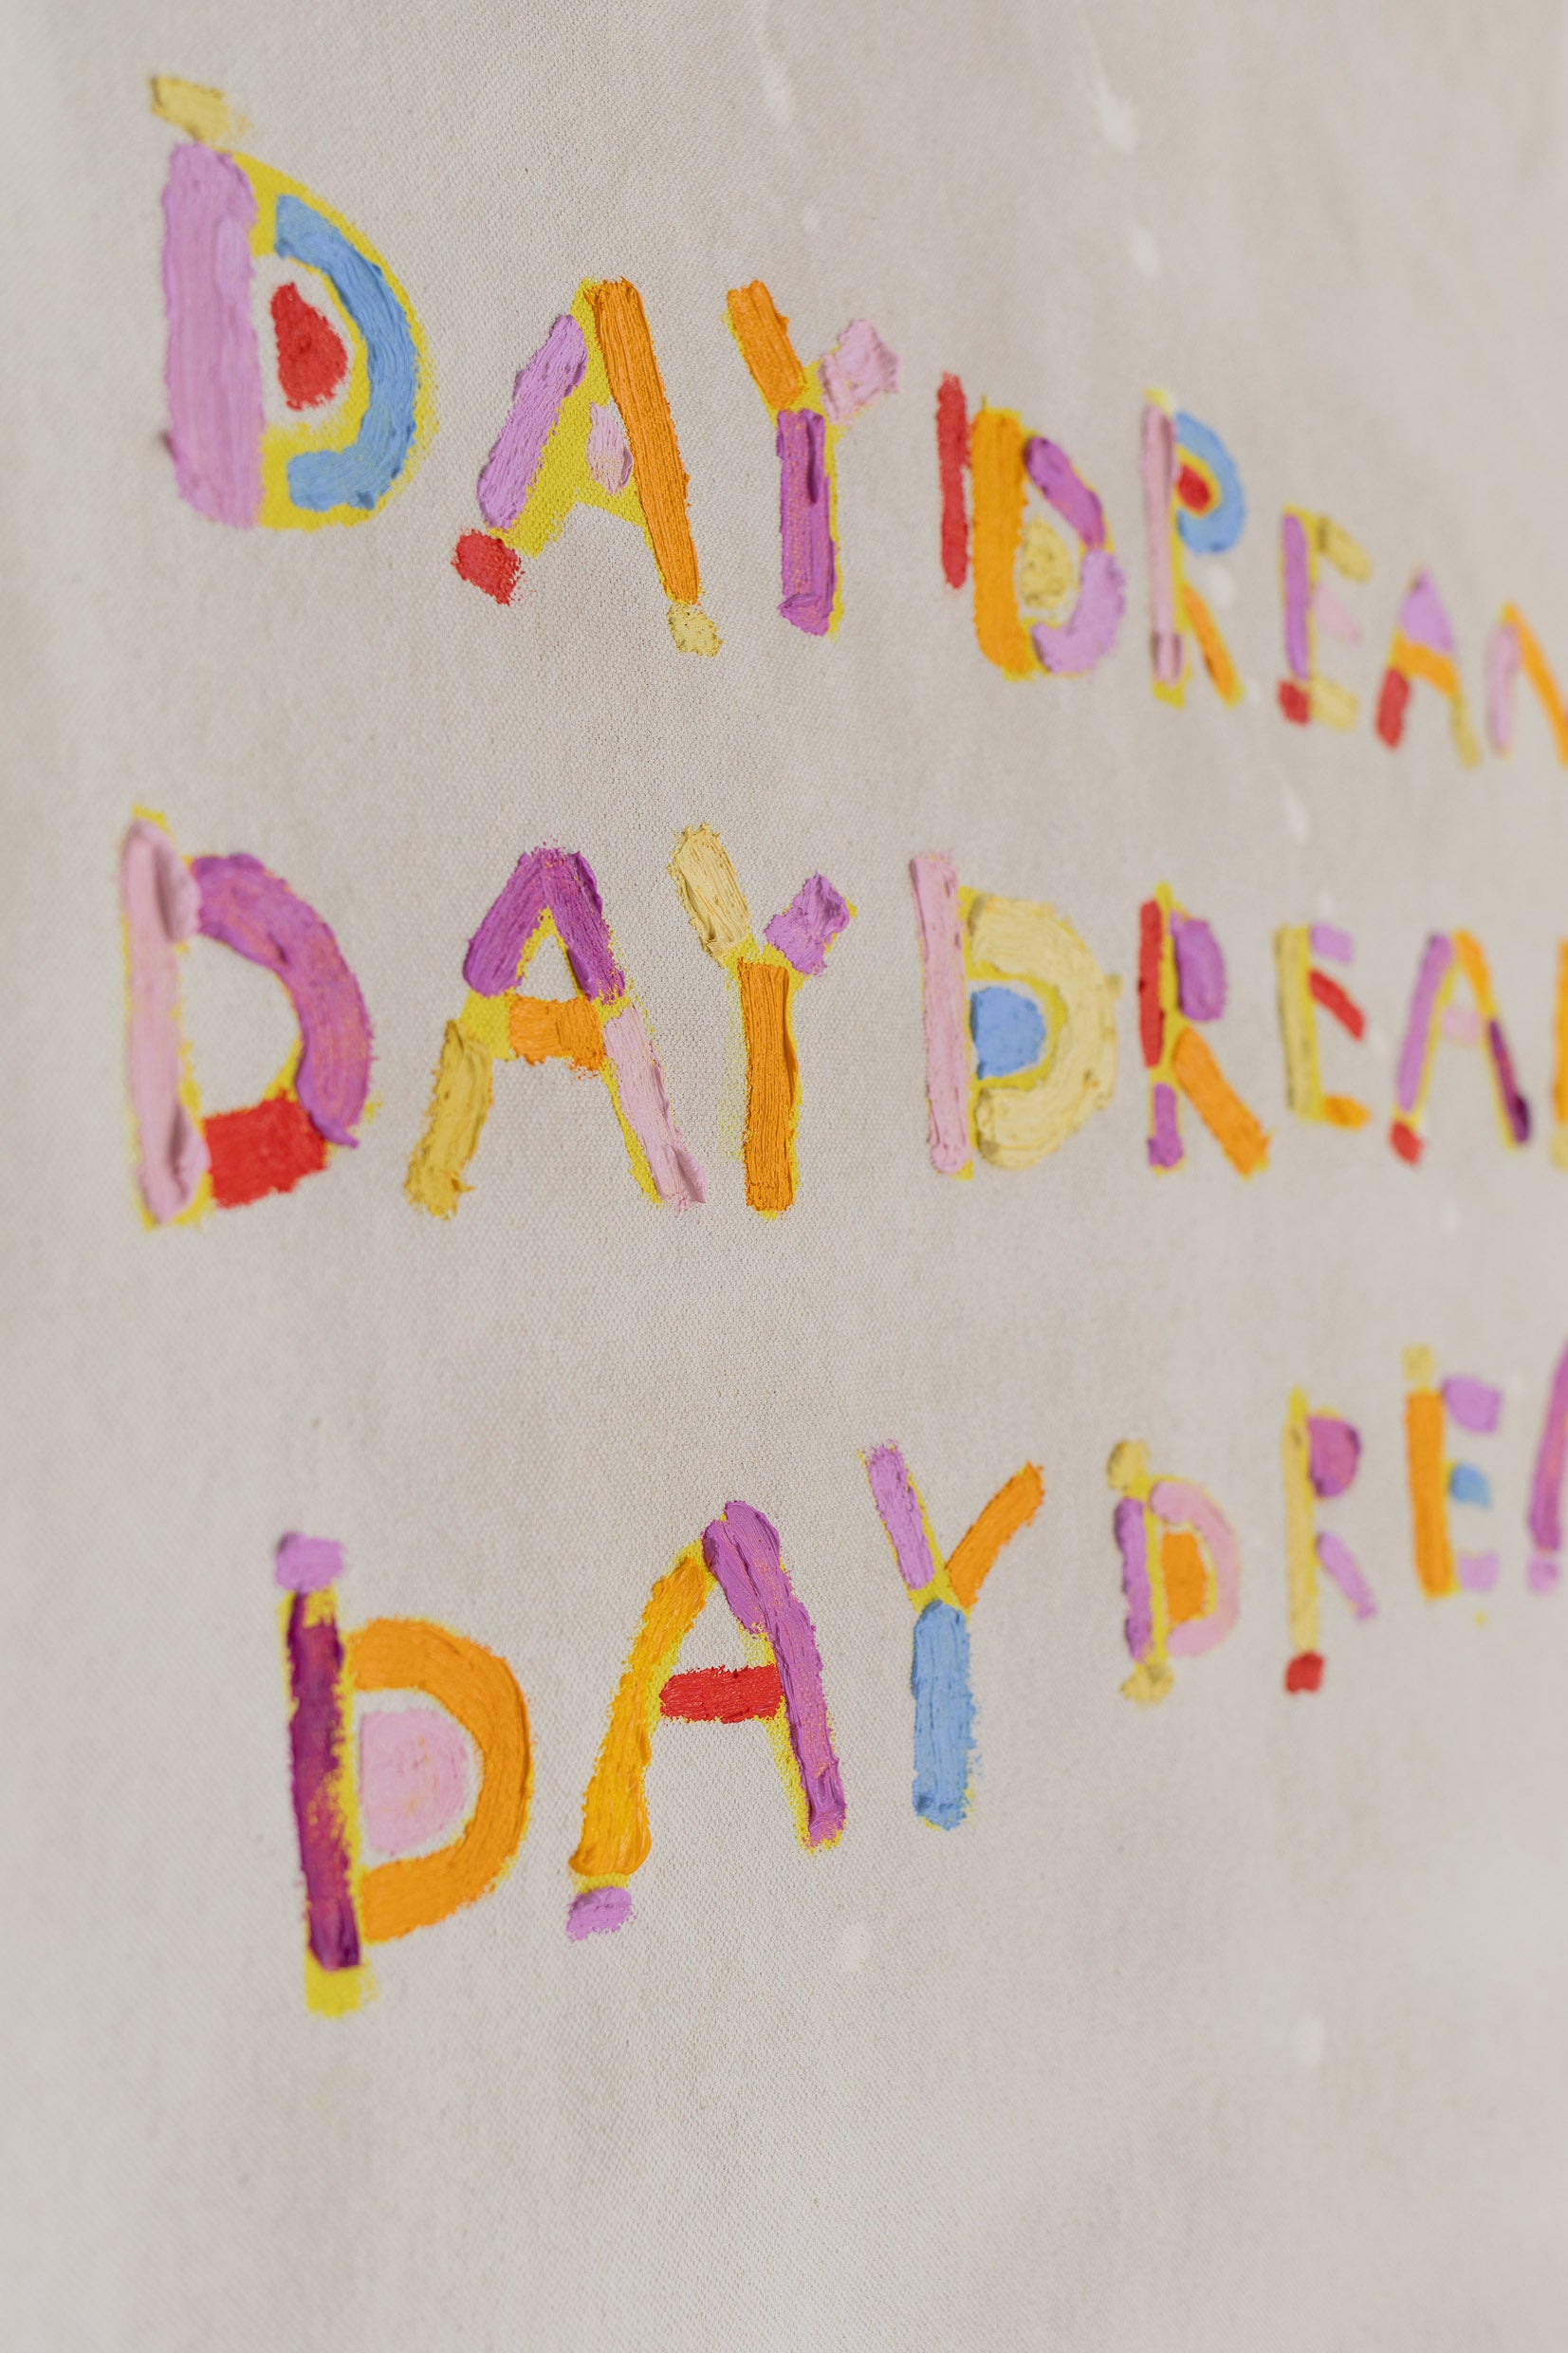 DAYDREAM
DAYDREA
DAYDREA